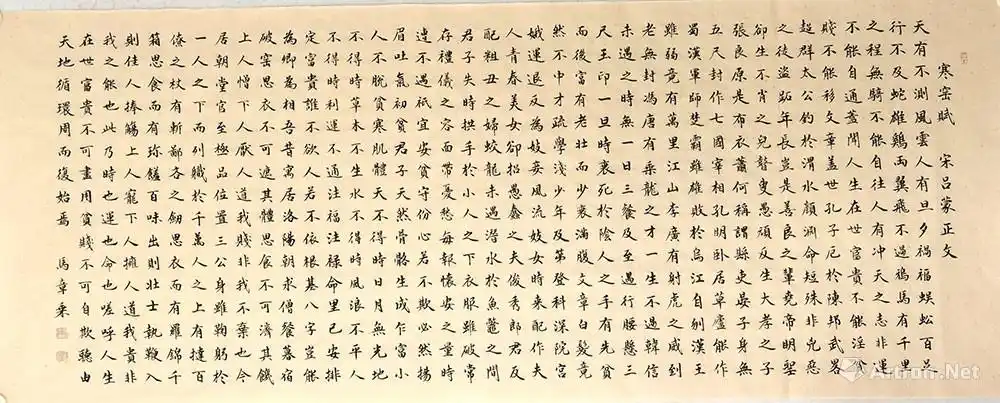 寒窑賦 宋吕蒙正文
天有不測風雲人有旦夕禍福蜈蚣百足
行不及蛇雄鷄兩翼飛不過鴉馬有千里
之程無騎不能自往人有冲天之志非運
不能自通蓋聞人生在世富貴不能淫貧
賤不能移文章蓋世孔子厄於陳邦武畧
超群太公釣於渭水顔淵命短殊非兇惡
之徒盜跖年長豈是善良之輩堯帝明聖
卻生不肖之兒瞽叟愚頑反生大孝之子
張良原是布衣蕭何稱謂縣吏晏子身無
五尺封作七國宰相孔明卧居草廬能作
蜀漢軍師楚霸雖雄敗於烏江自刎漢王
雖弱竟有萬里江山李廣有射虎之威到
老無封馮唐有乘龍之才一生不過韓信
未遇之時無一日三餐及至遇行腰懸三
尺玉印一旦時衰死於陰人之手有先貧
而後富有老壯而少衰滿腹文章白髮竟
然不中才疏學淺少年及第登科深院宮
娥運退反為妓妾風流妓女時來配作夫
人青春美女卻招愚蠢之夫俊秀郎君反
配粗丑之婦蛟龍未遇潜水於魚鱉之間
君子失時拱手於小人之下衣服雖破常
存禮儀之容面帶憂愁每報懷安之量時
遭不遇祇宜安貧守份心若不欺必然揚
眉吐氣初貧君子天然骨骼生成乍富小
人不脱貧寒肌體天不得時日月無光地
不得時草木不生水不得時風浪不平人
不得時利運不通注福注禄命里已安排
定富貴誰不欲人若不依根基八字豈能
為卿為相吾昔寓居洛陽朝求僧餐暮宿
破窑思衣不可遮其體思食不可濟其饑
上人憎下人厭人道我賤非我不棄也今
居朝堂官至極品位置三公身雖鞠躬於
一人之下而列職於千萬人之上有撻百
僚之杖有斬鄙吝之劍思衣而有羅錦千
箱思食而有珍饈百味出則壯士執鞭入
則佳人捧觴上人寵下人擁人道我貴非
我之能也此乃時也運也命也嗟呼人生
在世富貴不可盡用貧賤不可自欺聽由
天地循環周而復始焉 馬章
Artron.Net